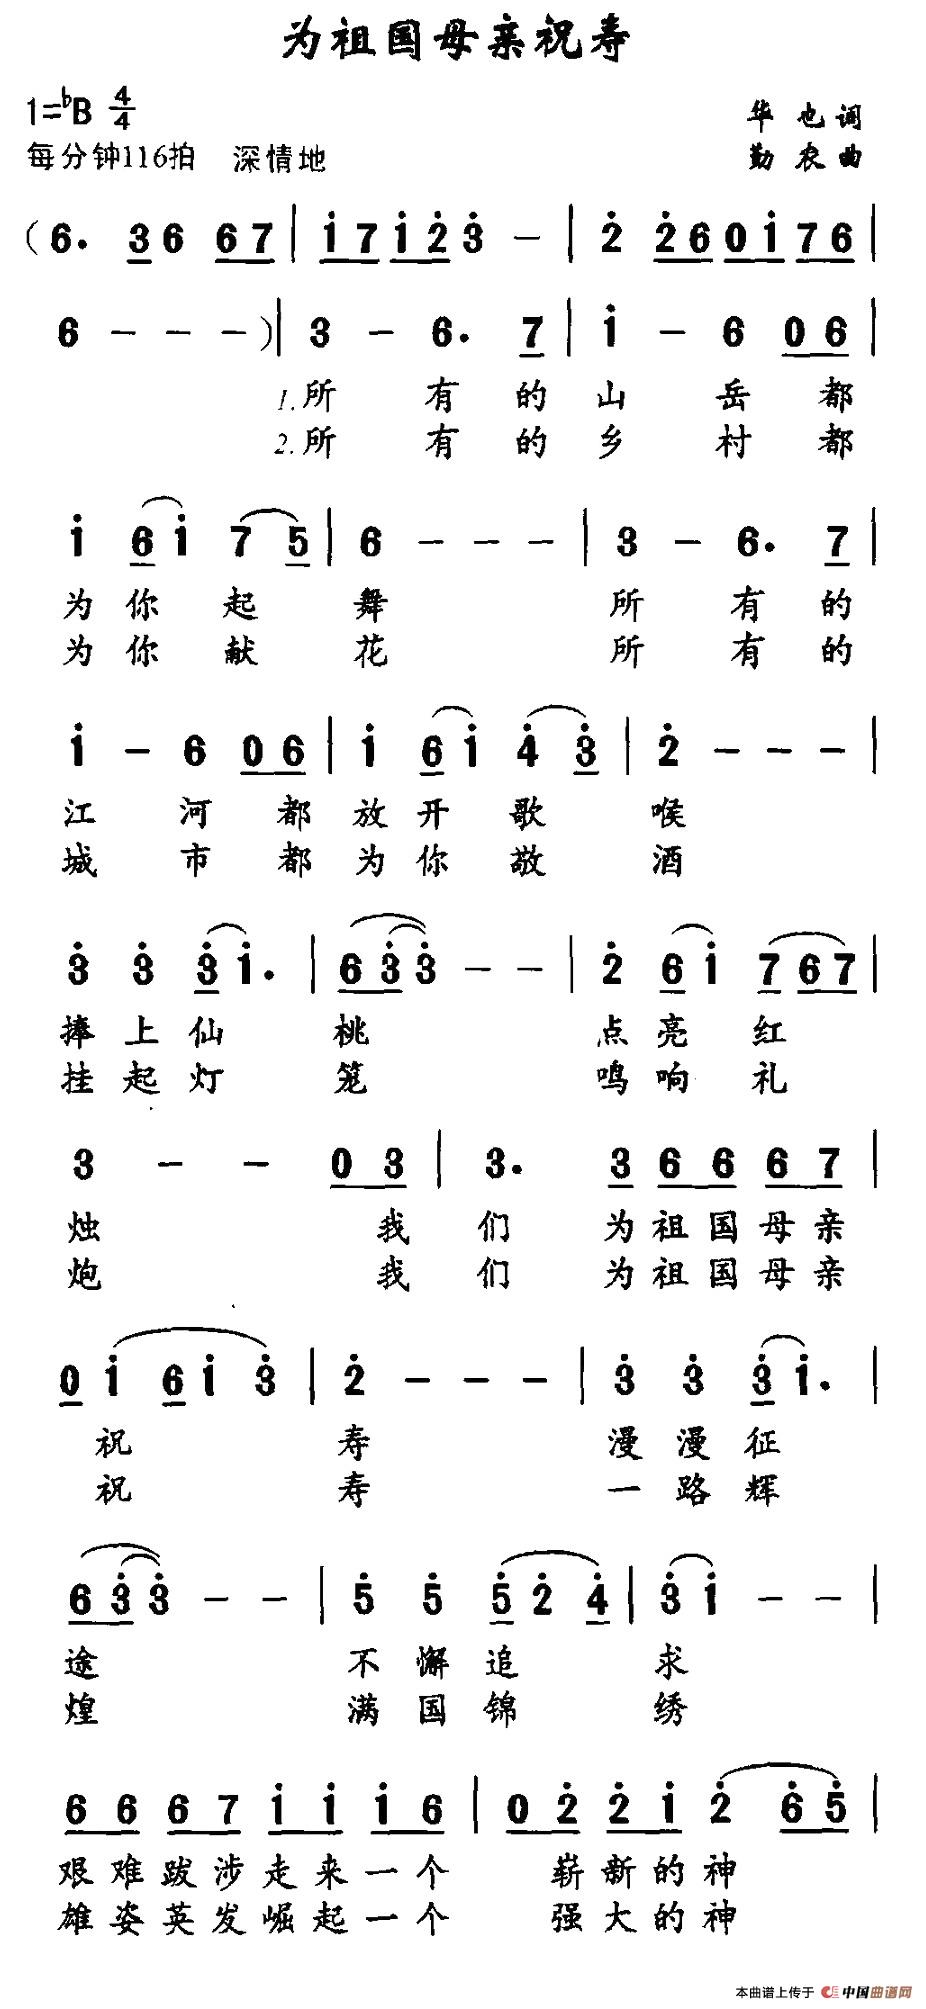 为祖国母亲祝寿
1=♭B 4/4
华也词
每分钟116拍 深情地
勤农曲
(6. 36 67 | i7 iż 3 - | 2 26 0i 76 |
6 - - - )| 3 - 6. 7 | i - 6 06 |
1.所有的山岳都
2.所有的乡村都
i 6i 7 5 | 6 - - - | 3 - 6. 7 |
为你起舞 所有的
为你献花 所有的
i - 6 06 | i 6i 4 3 | 2 - - - |
江河都放开歌喉
城市都为你敬酒
3 3 3i. | 633 - - | 2 6i 767 |
捧上仙桃 点亮红
挂起灯笼 鸣响礼
3 - - 03 | 3. 3 66 67 |
烛 我们 为祖国母亲
炮 我们 为祖国母亲
0i 6i 3 | 2 - - - | 3 3 3i. |
祝寿 漫漫征
祝寿 一路辉
633 - - | 5 5 52 4 | 3i - - |
途 不懈追求
煌 满国锦绣
66 67 ii i6 | 02 2i 2 65 |
艰难跋涉走来一个 崭新的神
雄姿英发崛起一个 强大的神
本曲谱上传于 中国曲谱网